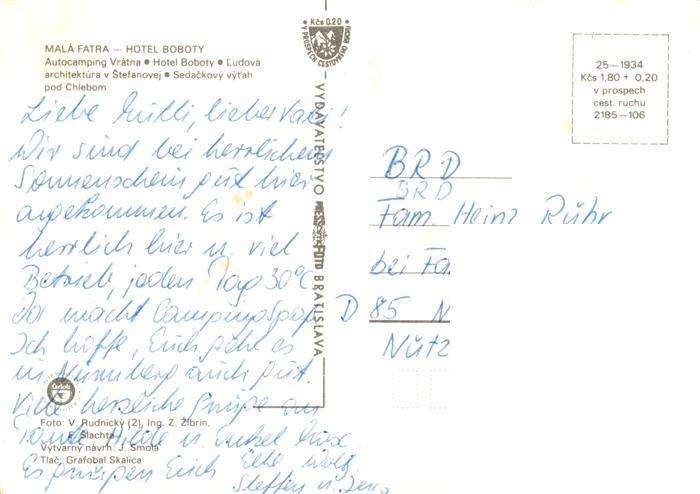 MALÁ FATRA — HOTEL BOBOTY
Autocamping Vrátna ● Hotel Boboty ● Ľudová
architektúra v Štefanovej ● Sedačkový výťah
pod Chlebom
Liebe Mutti, lieber Vati!
Wir sind bei herrlichem
Sonnenschein gut hier
angekommen. Es ist
herrlich hier u. viel
Betrieb, jeden Tag 30°C
Da macht Camping Spaß
Ich hoffe, Euch geht es
in Nürnberg auch gut.
Viele herzliche Grüße an
Tante Hilde u. Onkel Max
Es grüßen Euch Elke Wolf
Steffen u. Jens
Foto: V. Rudnický (2), Ing. Z. Žibrin,
Šlachta
Výtvarný návrh: J. Smola
Tlač, Grafobal Skalica
Kčs 0,20
V PROSPECH CESTOVNÉHO RUCHU
VYDAVATEĽSTVO
FOTO BRATISLAVA
25—1934
Kčs 1,80 + 0,20
v prospech
cest. ruchu
2185—106
BRD
BRD
Fam. Heinz Rühr
bei Fa.
D 85 N
Nütz